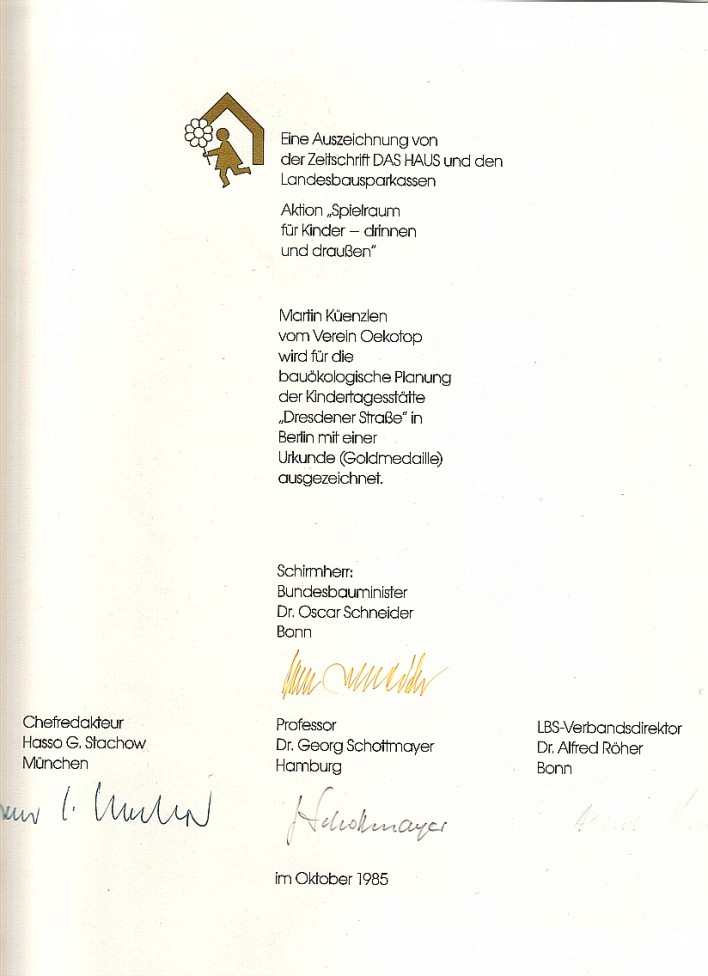 Eine Auszeichnung von
der Zeitschrift DAS HAUS und den
Landesbausparkassen
Aktion „Spielraum
für Kinder – drinnen
und draußen“
Martin Küenzlen
vom Verein Oekotop
wird für die
bauökologische Planung
der Kindertagesstätte
„Dresdener Straße“ in
Berlin mit einer
Urkunde (Goldmedaille)
ausgezeichnet.
Schirmherr:
Bundesbauminister
Dr. Oscar Schneider
Bonn
Chefredakteur
Hasso G. Stachow
München
Professor
Dr. Georg Schottmayer
Hamburg
Schottmayer
LBS-Verbandsdirektor
Dr. Alfred Röher
Bonn
im Oktober 1985